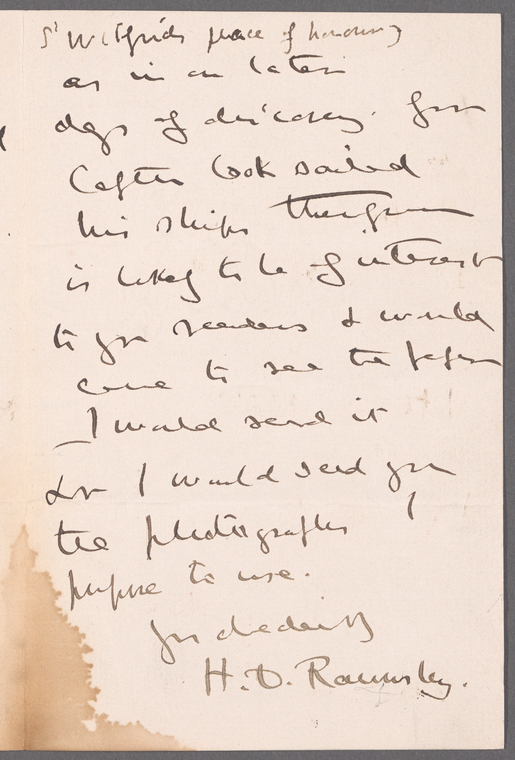 St Wilfrids place of honour
as in on later
days of discovery. from
Captn Cook sailed
his ships therefrom
is likely to be of interest
to yr readers & would
come to see the paper
I would send it
I would send you
the photographs I
purpose to use.
Yrs obediently
H. D. Rawnsley.